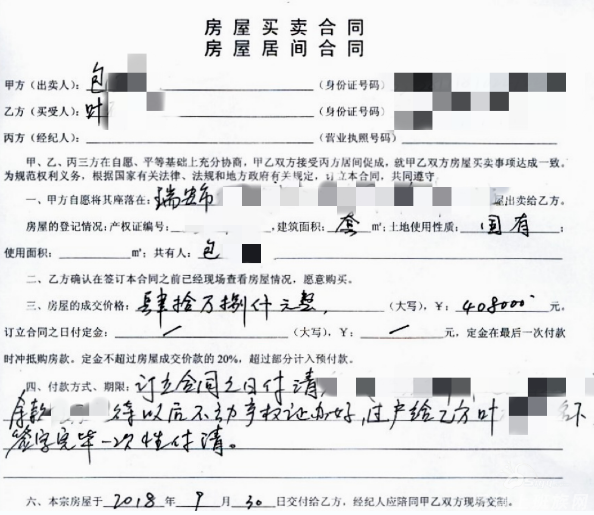 房屋买卖合同
房屋居间合同
甲方（出卖人）：包 （身份证号码）
乙方（买受人）：叶 （身份证号码）
丙方（经纪人）： （营业执照号码）
甲、乙、丙三方在自愿、平等基础上充分协商，甲乙双方接受丙方居间促成，就甲乙双方房屋买卖事项达成一致。
为规范权利义务，根据国家有关法律、法规和地方政府有关规定，订立本合同，共同遵守
一、甲方自愿将其座落在：瑞安市 出卖给乙方。
房屋的登记情况：产权证编号： ，建筑面积：套 ㎡；土地使用性质：国有；
使用面积： ㎡；共有人：包
二、乙方确认在签订本合同之前已经现场查看房屋情况，愿意购买。
三、房屋的成交价格：肆拾万捌仟元整，（大写），￥：408000 元。
订立合同之日付定金：/ （大写），￥：/ 元，定金在最后一次付款
时冲抵购房款。定金不超过房屋成交价款的20%，超过部分计入预付款。
四、付款方式、期限：订立合同之日付清，
余款 待以后不动产权证办好，过户给乙方叶 名下
签字完毕一次性付清。
六、本宗房屋于2018年9月30日交付给乙方，经纪人应陪同甲乙双方现场交割。